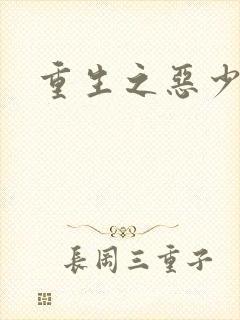 重生之惡少
長岡三重子